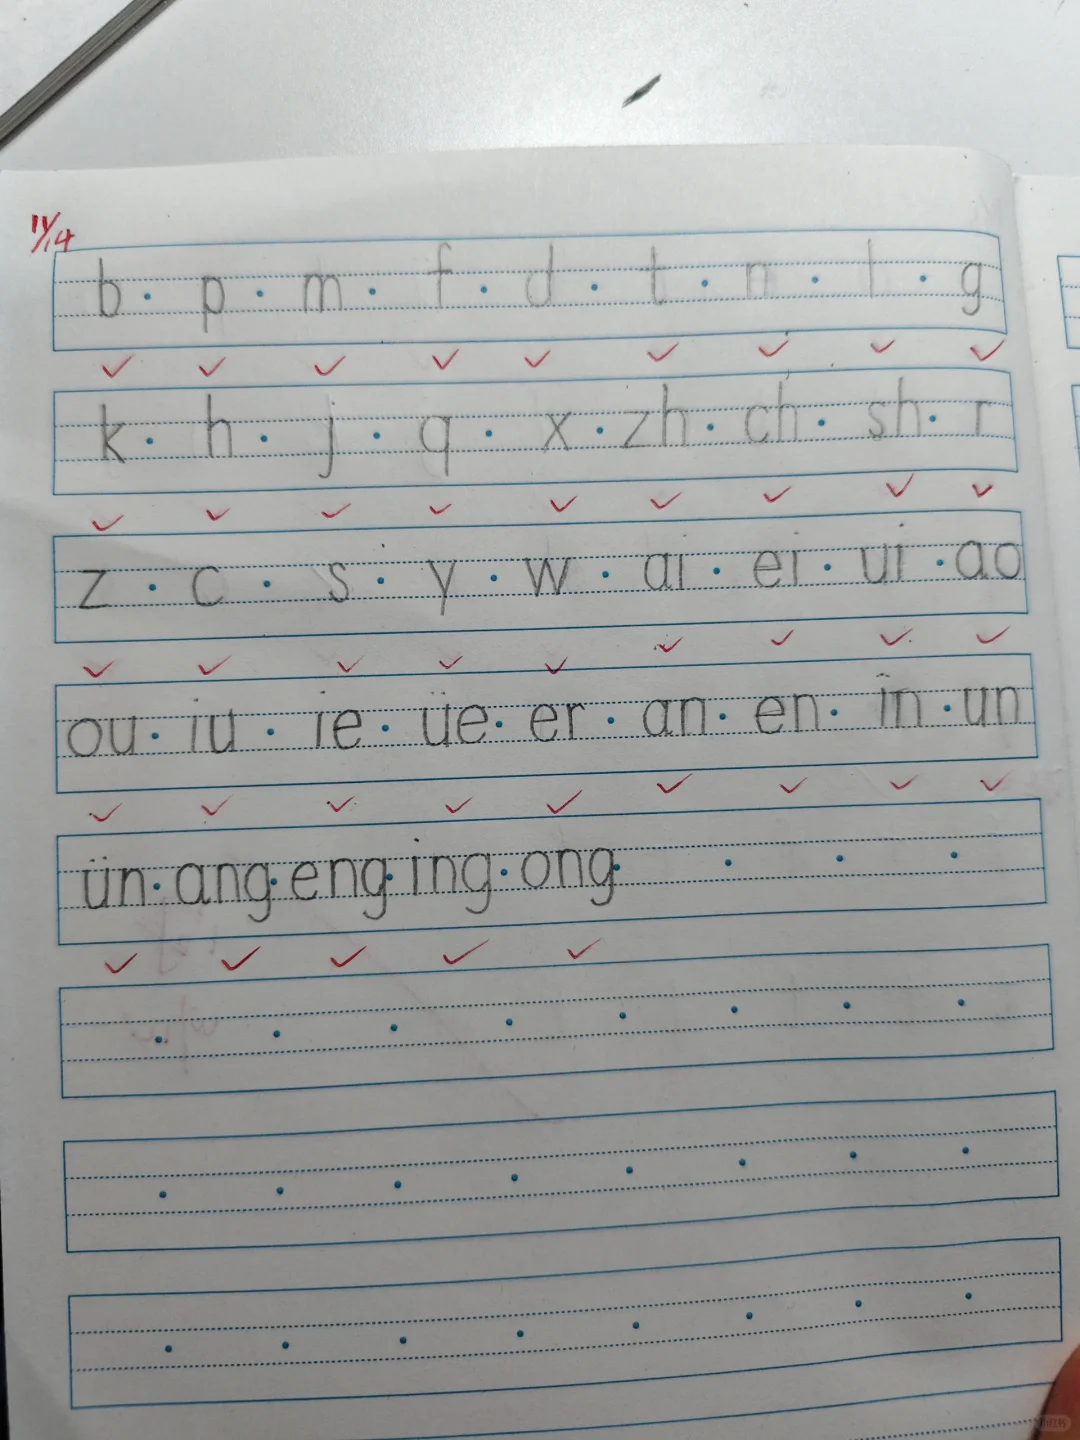 11/14
b p m f d t n l g
k h j q x zh ch sh r
z c s y w ai ei ui ao
ou iu ie üe er an en in un
ün ang eng ing ong
小红书